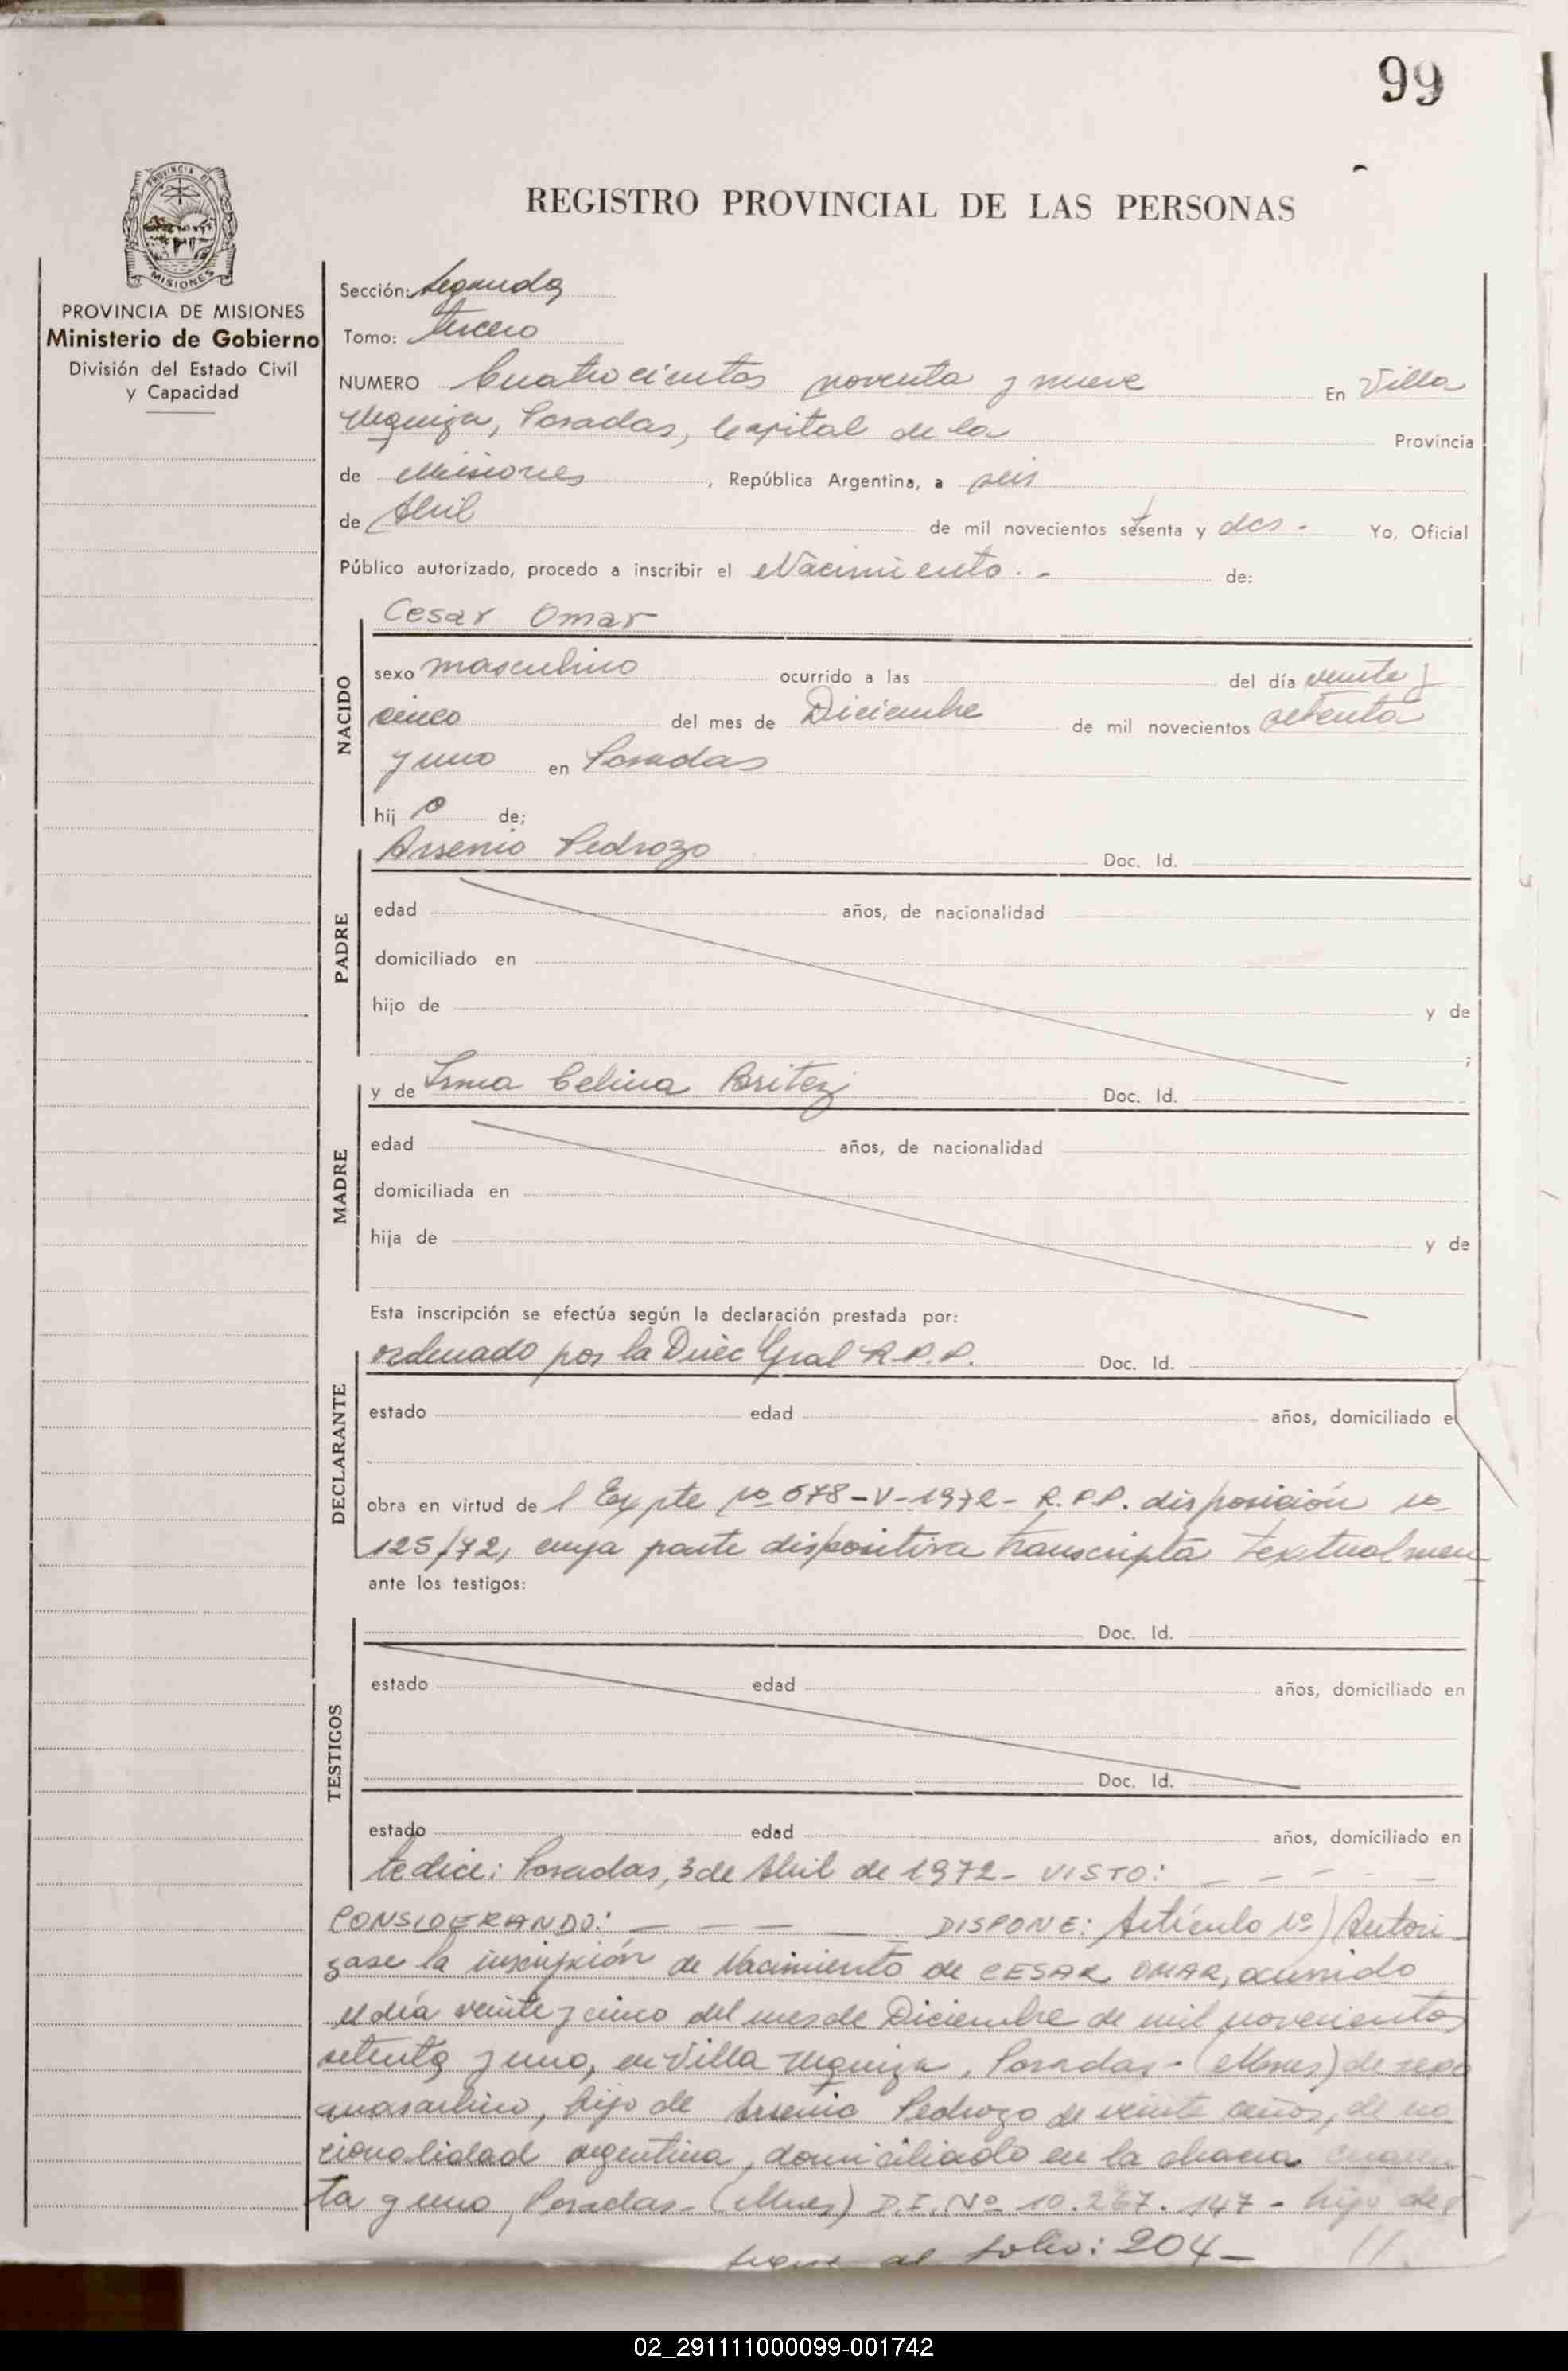 99
PROVINCIA DE
MISIONES
REGISTRO PROVINCIAL DE LAS PERSONAS
PROVINCIA DE MISIONES
Ministerio de Gobierno
División del Estado Civil
y Capacidad
Sección: Segunda
Tomo: Tercero
NUMERO Cuatrocientos noventa y nueve En Villa
Urquiza, Posadas, Capital de la Provincia
de Misiones, República Argentina, a seis
de Abril de mil novecientos setenta y dos - Yo, Oficial
Público autorizado, procedo a inscribir el Nacimiento. - de:
NACIDO
Cesar Omar
sexo masculino ocurrido a las del día veinte y
cinco del mes de Diciembre de mil novecientos setenta
y uno en Posadas
hij o de;
PADRE
Arsenio Pedrozo Doc. Id.
edad años, de nacionalidad
domiciliado en
hijo de y de
;
MADRE
y de Irma Celina Britez Doc. Id.
edad años, de nacionalidad
domiciliada en
hija de y de
Esta inscripción se efectúa según la declaración prestada por:
DECLARANTE
ordenado por la Direc Gral R.P.P. Doc. Id.
estado edad años, domiciliado e
obra en virtud de l Expte No 678-V-1972- R.P.P. disposición no
125/72, cuya parte dispositiva transcripta textualmen
ante los testigos:
TESTIGOS
Doc. Id.
estado edad años, domiciliado en
Doc. Id.
estado edad años, domiciliado en
te dice: Posadas, 3 de Abril de 1972- VISTO: _ _ _ _
CONSIDERANDO: _ _ _ _ DISPONE: Artículo 1o) Autori
zase la inscripción de Nacimiento de CESAR OMAR, ocurrido
el día veinte y cinco del mes de Diciembre de mil novecientos
setenta y uno, en Villa Urquiza, Posadas- (Mnes) de sexo
masculino, hijo de Arsenio Pedrozo de veinte años, de na
cionalidad argentina, domiciliado en la chacra cincuen
ta y uno, Posadas- (Mnes) D.I. No 10.267.147- hijo de
sigue al folio: 204- //.
02_291111000099-001742